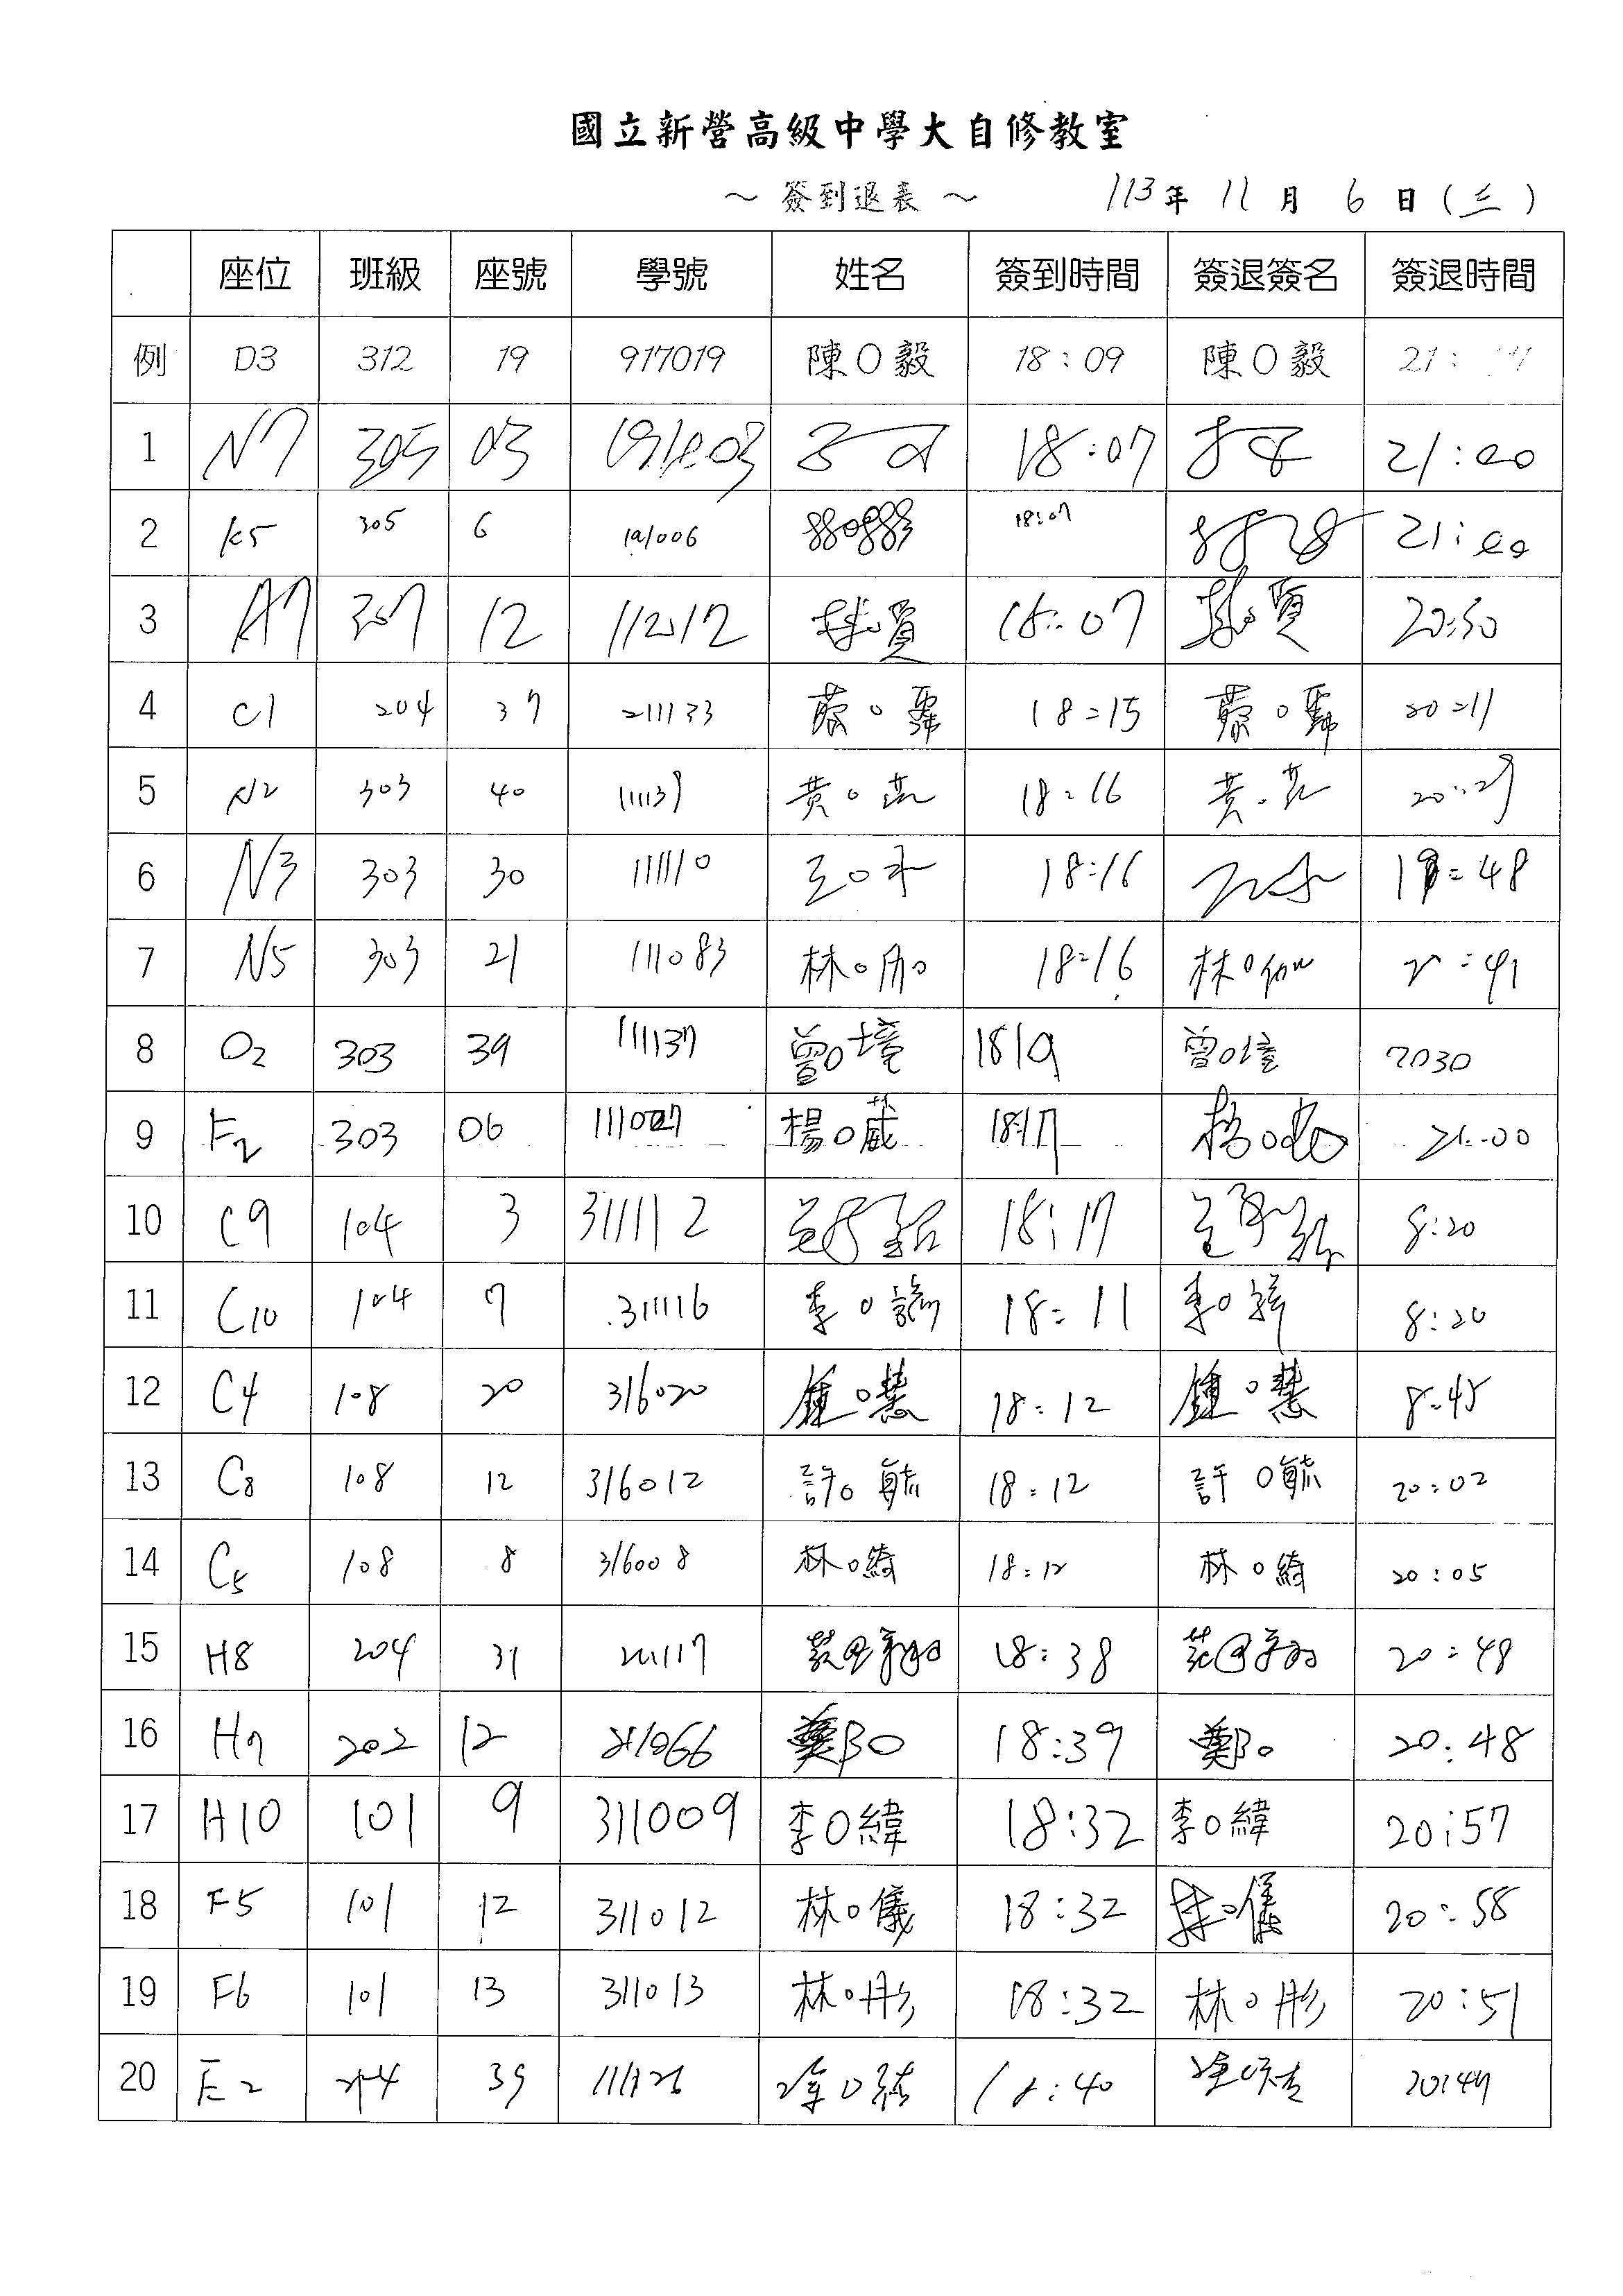 國立新營高級中學大自修教室
～ 簽到退表 ～ 113年 11月 6日(三)
座位 班級 座號 學號 姓名 簽到時間 簽退簽名 簽退時間
例 D3 312 19 917019 陳O毅 18:09 陳O毅 21:
1 N7 305 03 18:07 21:00
2 K5 305 6 191006 18:07 21:00
3 A7 307 12 18:07 20:50
4 C1 204 37 211133 18:15 20:11
5 N2 303 40 黃O 18:16 黃 20:29
6 N3 303 30 111110 王O 18:16 48
7 N5 303 21 111083 林O 18:16 林O
8 O2 303 39 111137 曾O境 1819 曾O境 2030
9 F2 303 06 楊O葳 1817 楊O 21:00
10 C9 104 3 311112 18:17 8:20
11 C10 104 7 311116 李O 18:11 李O 8:20
12 C4 108 20 316020 鍾O慧 18:12 鍾O慧 8:45
13 C8 108 12 316012 許O毓 18:12 許O毓 20:02
14 C5 108 8 316008 林O綺 18:12 林O綺 20:05
15 H8 204 31 211117 18:38 20:48
16 H7 202 12 211066 鄭O 18:39 鄭O 20:48
17 H10 101 9 311009 李O緯 18:32 李O緯 20:57
18 F5 101 12 311012 林O儀 18:32 林O儀 20:58
19 F6 101 13 311013 林O彤 18:32 林O彤 20:51
20 E2 39 18:40 20:47